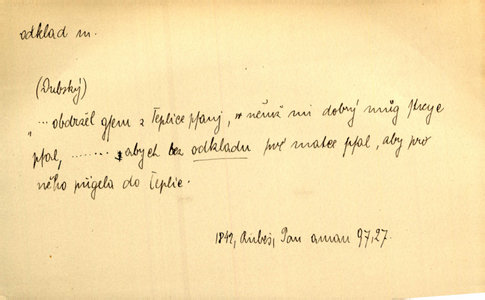 odklad m.
(Dubský)
"... obdržel gsem z Teplice psanj, w němž mi dobrý můg streyc
psal, ........ abych bez odkladu své matce psal, aby pro
něho přigela do Teplic.
1842, Rubeš, Pan aman 97,27.